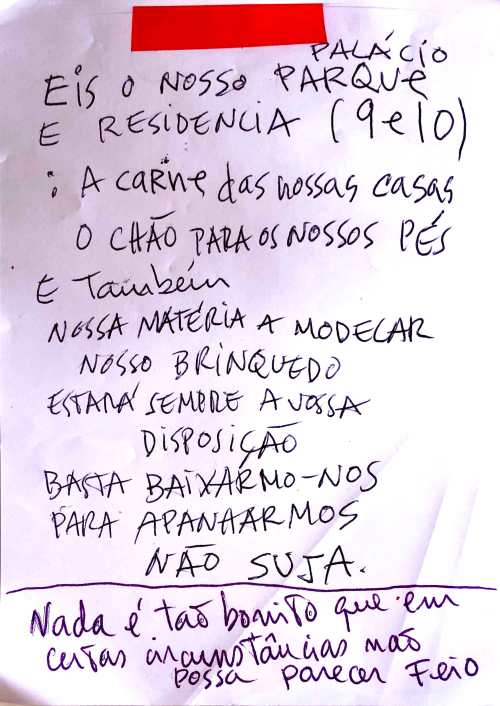 PALÁCIO
EIS O NOSSO PARQUE
E RESIDENCIA (9 e 10)
: A CARNE das nossas casas
O CHÃO PARA OS NOSSOS PÉS
E Também
NOSSA MATÉRIA A MODELAR
NOSSO BRINQUEDO
ESTARÁ SEMPRE A VOSSA
DISPOSIÇÃO
BASTA BAIXARMO-NOS
PARA APANHARMOS
NÃO SUJA.
Nada é tão bonito que em
certas circunstâncias não
possa parecer Feio